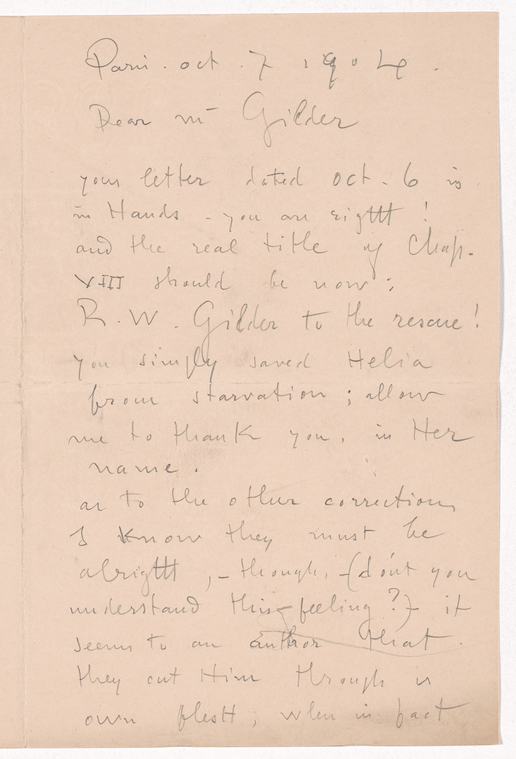 Paris. oct. 7 1904.
Dear Mr Gilder
your letter dated oct. 6 is
in Hands - you are rigttt !
and the real title of Chap.
VIII should be now :
R. W. Gilder to the rescue!
you simply saved Helia
from starvation ; allow
me to thank you, in Her
name.
as to the other corrections
I know they must be
alrigttt ,- though, - (don't you
understand this feeling ?) - it
seems to an author that
they cut Him through is
own flestt ; when in fact